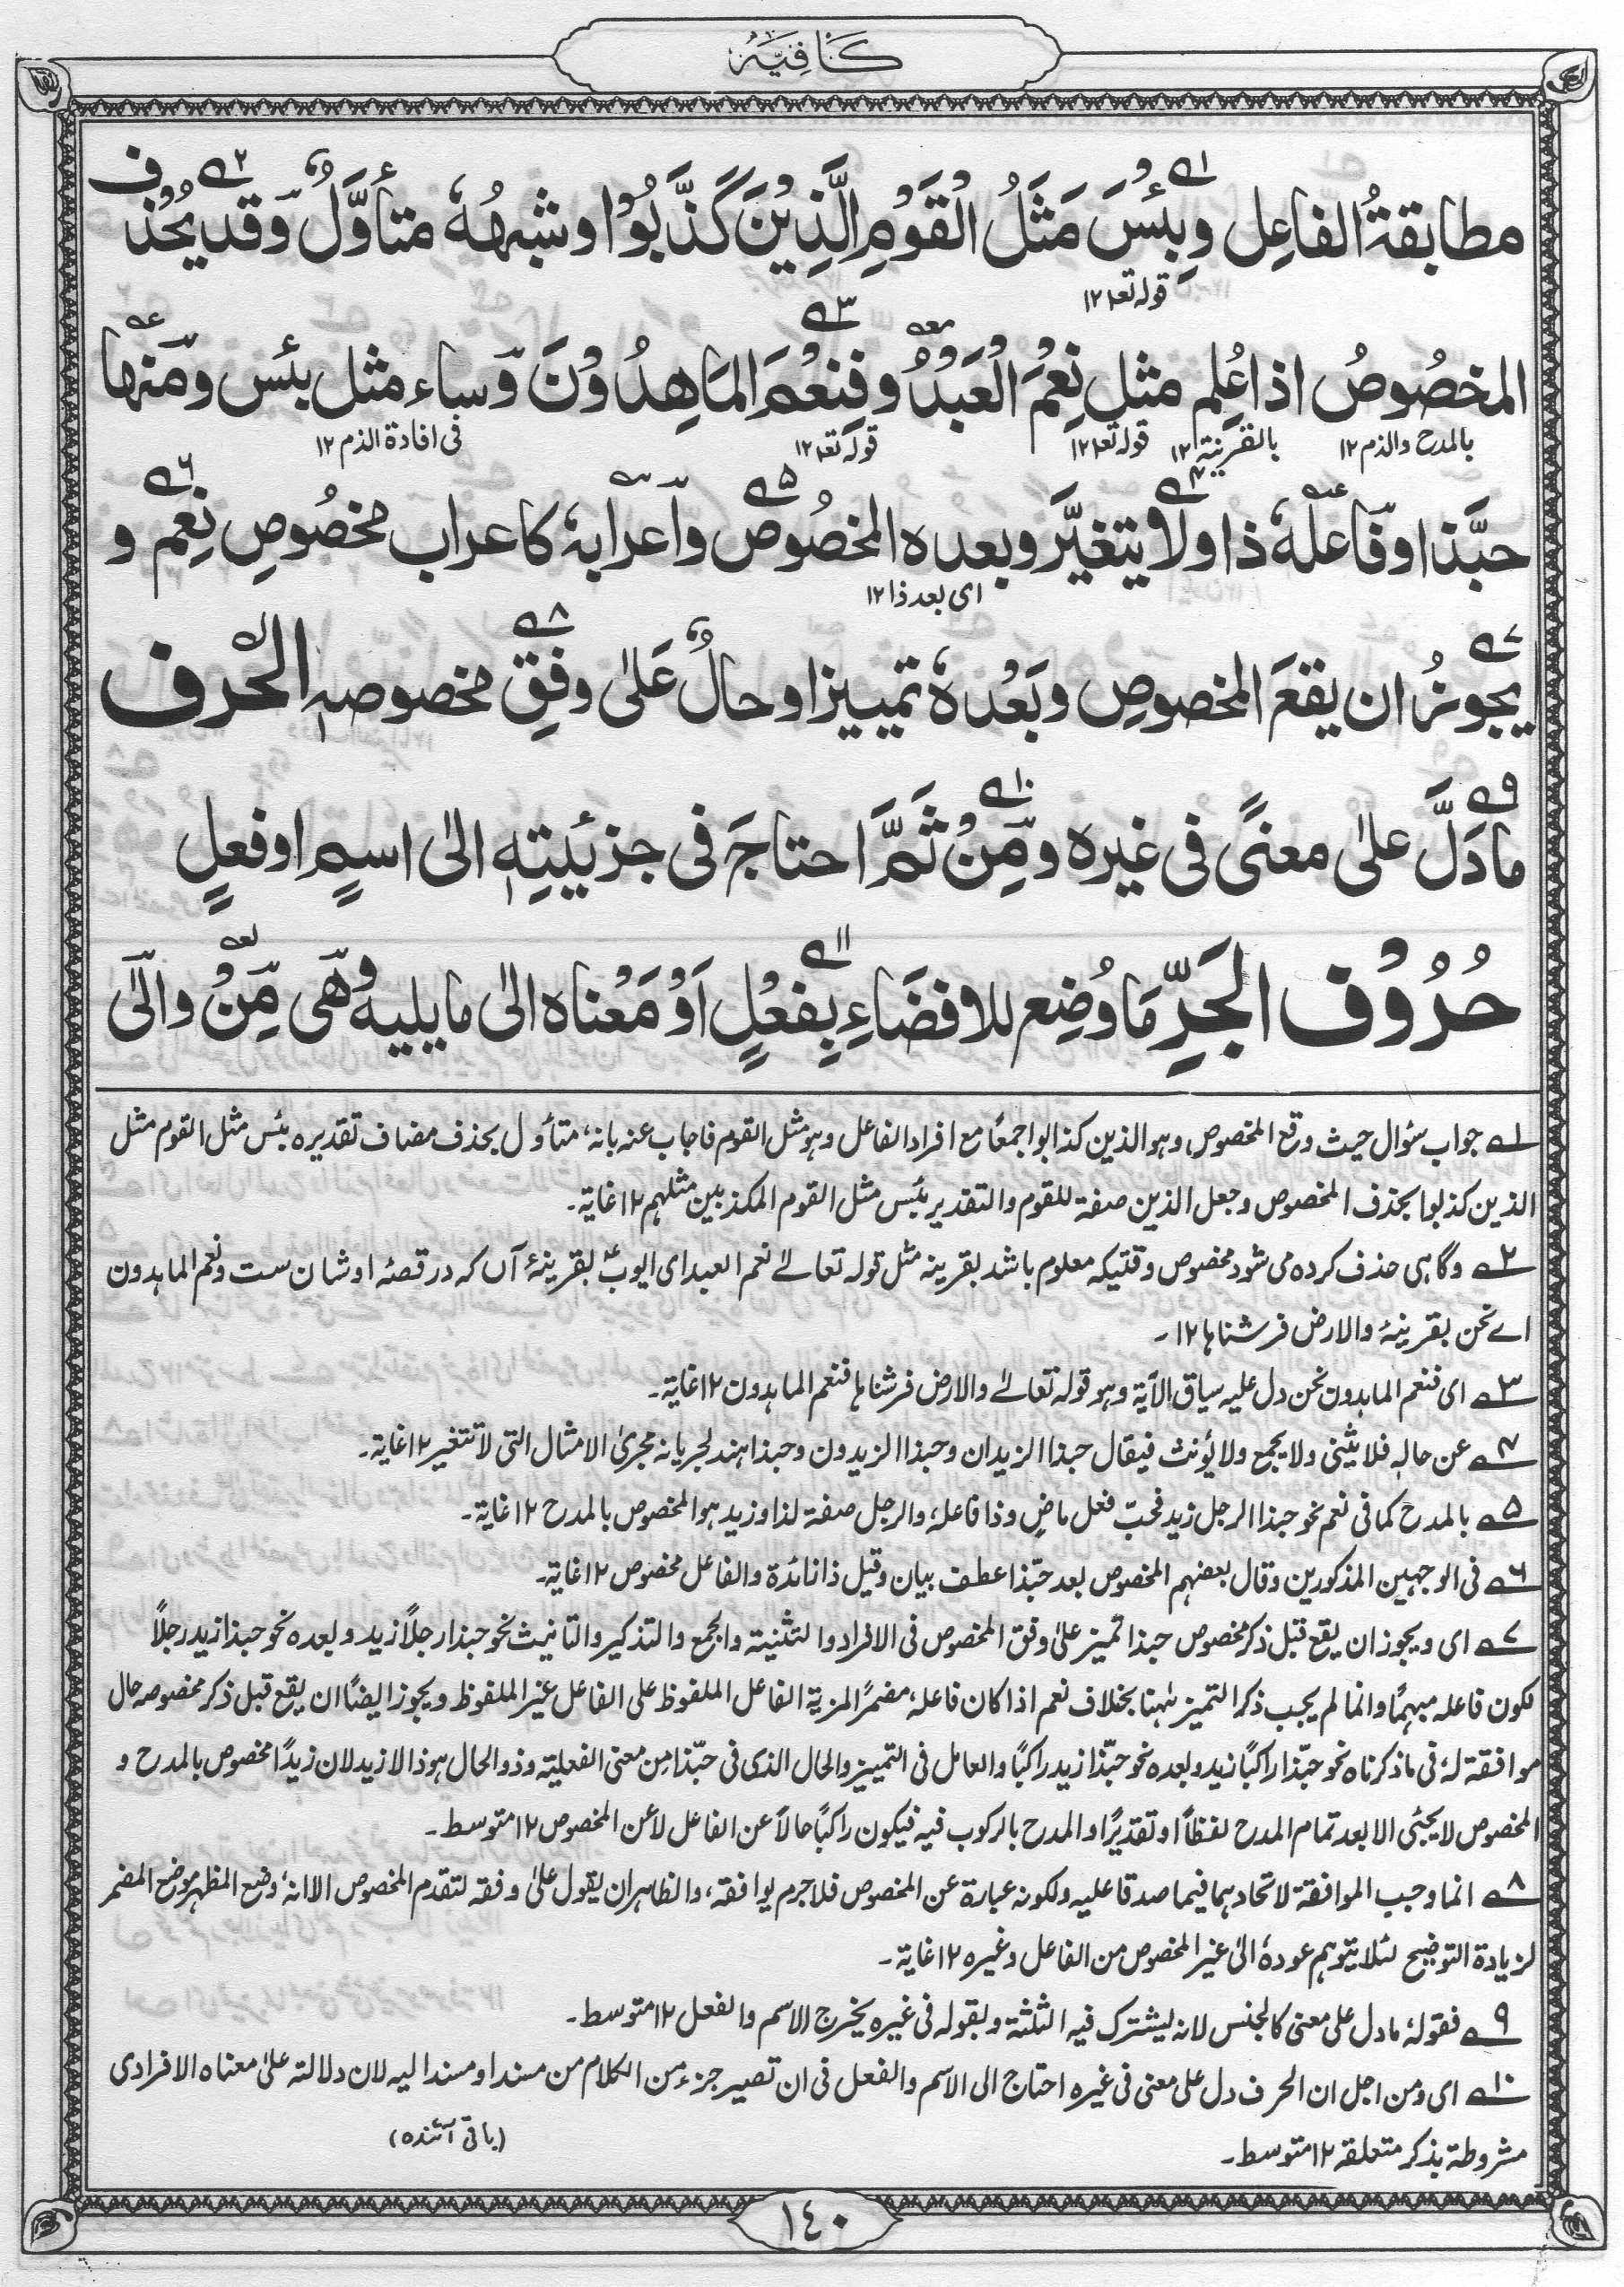 كَافِيَه
مطابقةُ الفاعِل وبِئْسَ مَثَلُ الْقَوْمِ الَّذِيْنَ كَذَّبُوْا وشبهُهٗ متأوَّلٌ وقد يُحْذف
قوله تعـ ١٢
المخصُوصُ اذا عُلِم مثل نِعْمَ الْعَبْدُ و فَنِعْمَ المَاهِدُوْنَ وساء مثل بئس ومنها
بالمدح والذم ١٢ بالقرينة ١٢ قوله تعـ ١٢ قوله تعـ ١٢ فى افادة الذم ١٢
حبَّذا وفاعلهٗ ذا ولا يتغيَّر وبعده المخصُوص واعرابهٗ كاعراب مخصُوصِ نِعم و
اى بعد ذا ١٢
يجوزُ ان يقعَ المخصوصِ وبَعْدهٗ تمييز او حالٌ عَلىٰ وفقِ مخصوصهٖ الحرف
ما دَلَّ علىٰ معنىً فى غيره ومِنْ ثَمَّ احتاجَ فى جزئيتِهٖ الىٰ اسمٍ او فعلٍ
حُرُوْف الجَرِّ مَا وُضِع للافضَاءِ بِفعْلٍ اَوْ مَعْناه الىٰ ما يليه وهى مِنْ والىٰ
١ے جواب سؤال حيث وقع المخصوص وهو الذين كذبوا جمعًا مع افراد الفاعل وهو مثل القوم فاجاب عنه بانهٗ متأول بحذف مضاف تقديره بئس مثل القوم مثل
الذين كذبوا بحذف المخصوص وجعل الذين صفة للقوم والتقدير بئس مثل القوم المكذبين مثلهم ١٢ غاية۔
٢ے وگاہی حذف کردہ می شود مخصوص وقتیکہ معلوم باشد بقرینہ مثل قولہ تعالےٰ نعم العبد ای ایوبؑ بقرینۂ آں کہ در قصۂ اوشان ست ونعم الماہدون
اے نحن بقرینۂ والارض فرشناہا ١٢۔
٣ے اى فنعم الماهدون نحن دل عليه سياق الآية وهو قوله تعالےٰ والارض فرشناها فنعم الماهدون ١٢ غاية۔
٤ے عن حاله فلا يثنى ولا يجمع ولا يؤنث فيقال حبذا الزيدان وحبذا الزيدون وحبذا هند لجريانه مجرىٰ الامثال التى لا تتغير ١٢ غاية۔
٥ے بالمدح كما فى نعم نحو حبذا الرجل زيد فحبّ فعل ماضٍ وذا فاعلهٗ والرجل صفة لذا وزيد هو المخصوص بالمدح ١٢ غاية۔
٦ے فى الوجهين المذكورين وقال بعضهم المخصوص بعد حبّذا عطف بيان وقيل ذا زائدة والفاعل مخصوص ١٢ غاية۔
٧ے اى ويجوز ان يقع قبل ذكر مخصوص حبذا تميز علىٰ وفق المخصوص فى الافراد والتثنية والجمع والتذكير والتانيث نحو حبذا رجلاً زيد وبعده نحو حبذا زيد رجلاً
لكون فاعله مبهمًا وانما لم يجب ذكر التميز ههنا بخلاف نعم اذا كان فاعلهٗ مضمرًا لمزية الفاعل الملفوظ على الفاعل غير الملفوظ ويجوز ايضًا ان يقع قبل ذكر مخصوصه حال
موافقة لهٗ فى ما ذكرناه نحو حبّذا راكبًا زيد وبعده نحو حبّذا زيد راكبًا والعامل فى التمييز والحال الذى فى حبّذا من معنى الفعلية وذو الحال هو ذا لا زيد لان زيدًا مخصوص بالمدح و
المخصوص لا يجئى الا بعد تمام المدح لفظاً او تقديرًا والمدح بالركوب فيه فيكون راكبًا حالاً عن الفاعل لا عن المخصوص ١٢ متوسط۔
٨ے انما وجب الموافقة لاتحادهما فيما صدقا عليه ولكونه عبارة عن المخصوص فلا جرم يوافقه، والظاهر ان يقول علىٰ وفقه لتقدم المخصوص الا انهٗ وضع المظهر موضع المضمر
لزيادة التوضيح لئلا يتوهم عودهٗ الىٰ غير المخصوص من الفاعل وغيره ١٢ غاية۔
٩ے فقولهٗ ما دل على معنى كالجنس لانه ليشترك فيه الثلثة وبقوله فى غيره يخرج الاسم والفعل ١٢ متوسط۔
١٠ے اى ومن اجل ان الحرف دل على معنى فى غيره احتاج الى الاسم والفعل فى ان تصير جزء من الكلام من مسند او مسند اليه لان دلالته علىٰ معناه الافرادى
مشروطة بذكر متعلقه ١٢ متوسط۔
(باقى آئنده)
١٤٠